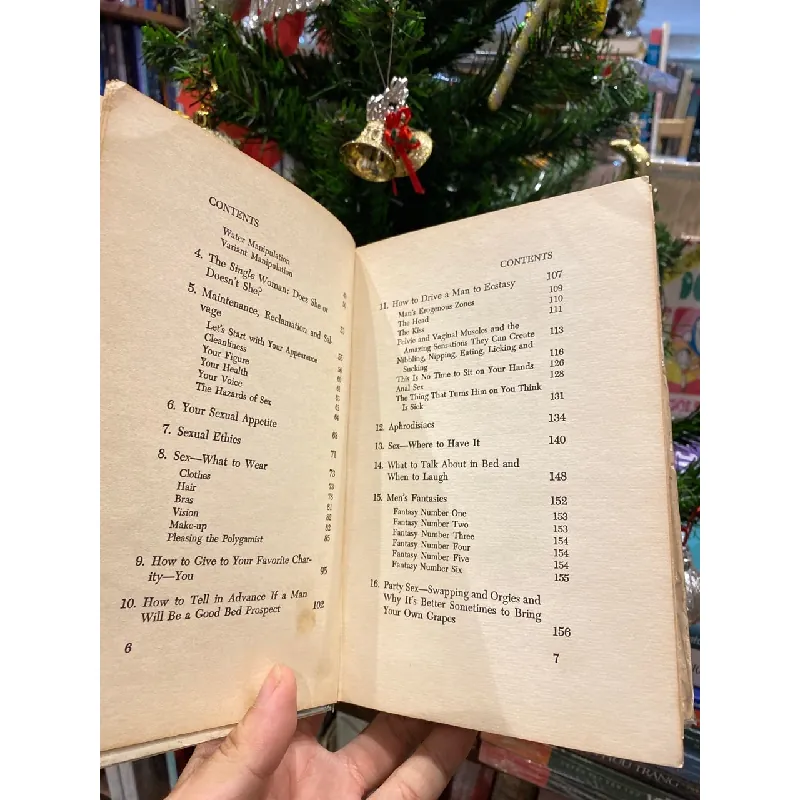 CONTENTS
Water Manipulation
Variant Manipulation
4. The Single Woman: Does She or
Doesn't She?
5. Maintenance, Reclamation and Sal-
vage
Let's Start with Your Appearance
Cleanliness
Your Figure
Your Health
Your Voice
The Hazards of Sex
6. Your Sexual Appetite
7. Sexual Ethics
8. Sex—What to Wear 71
Clothes
Hair
Bras
Vision
Make-up
Pleasing the Polygamist
9. How to Give to Your Favorite Char-
ity—You 95
10. How to Tell in Advance If a Man
Will Be a Good Bed Prospect 102
6
CONTENTS
11. How to Drive a Man to Ecstasy 107
Man's Erogenous Zones 109
The Head 110
The Kiss 111
Pelvic and Vaginal Muscles and the
Amazing Sensations They Can Create 113
Nibbling, Nipping, Eating, Licking and
Sucking 116
This Is No Time to Sit on Your Hands 126
Anal Sex 128
The Thing That Turns Him on You Think
Is Sick 131
12. Aphrodisiacs 134
13. Sex—Where to Have It 140
14. What to Talk About in Bed and
When to Laugh 148
15. Men's Fantasies 152
Fantasy Number One 153
Fantasy Number Two 153
Fantasy Number Three 154
Fantasy Number Four 154
Fantasy Number Five 154
Fantasy Number Six 155
16. Party Sex—Swapping and Orgies and
Why It's Better Sometimes to Bring
Your Own Grapes 156
7